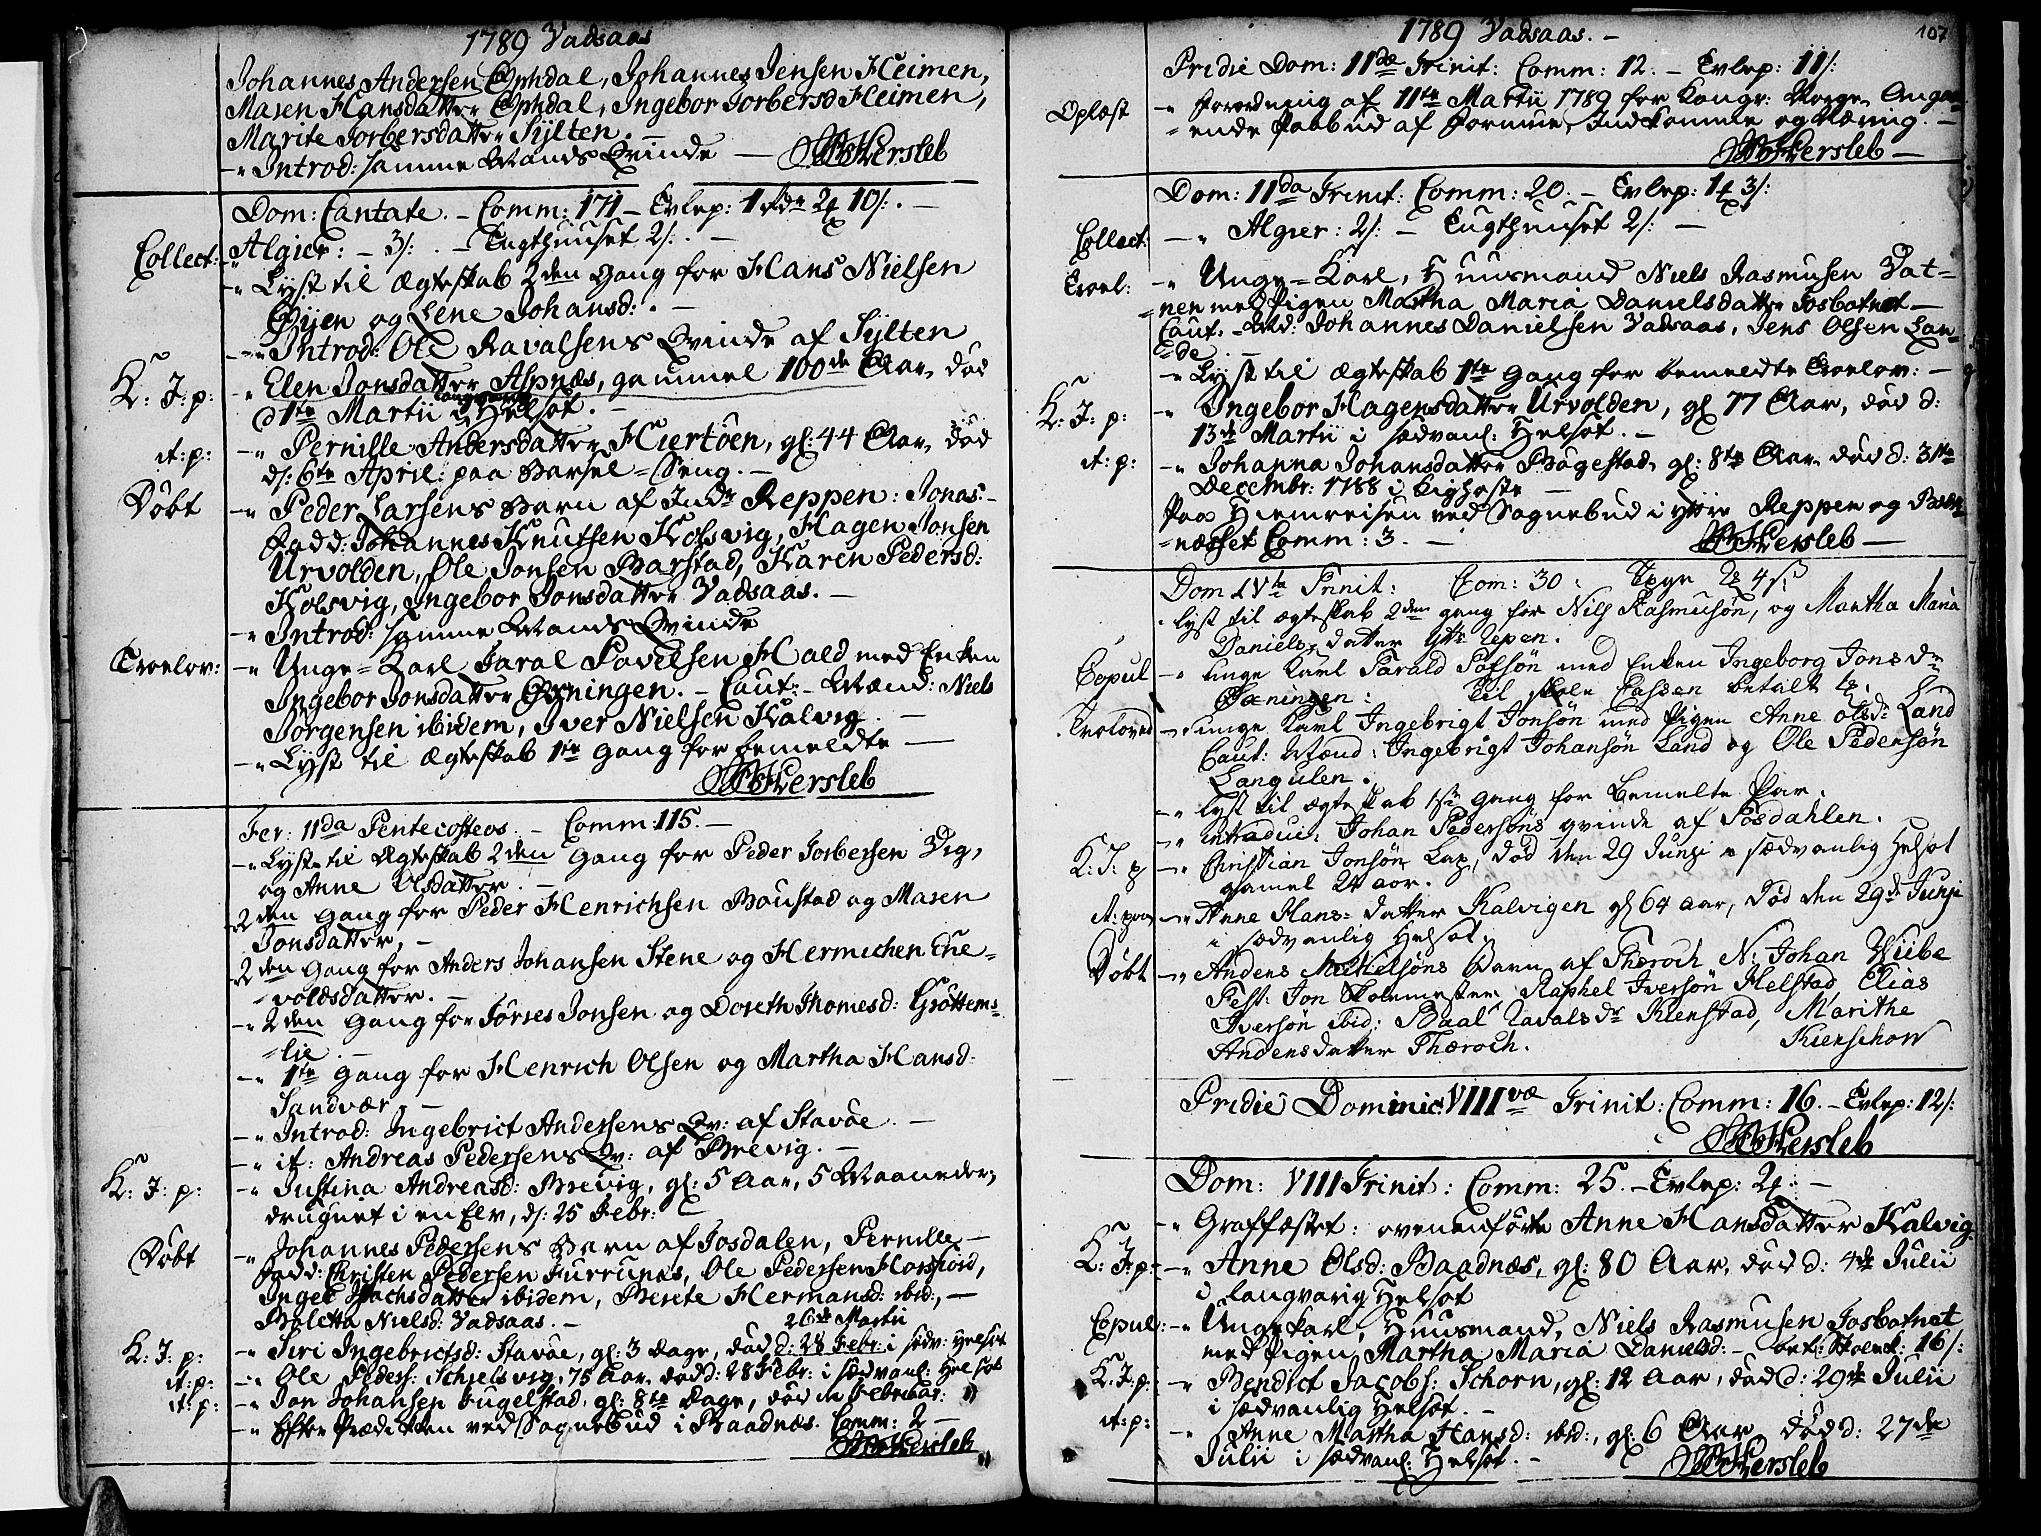 1789 Vadsaas
Johannes Andersen Ophdal, Johannes Jensen Heimen,
Masen Hansdatter Ophdal, Ingebor Torbersd Heimen,
Marite Torbersdatter Sylten. —
-" Introd: samme Mands Qvinde — Hersleb
Dom: Cantate. — Comm: 171 — Evlep: 10/. —
Collect: Algier: — 3/: — Tugthuuset 2/. —
-" Lyst til Ægteskab 2den Gang for Hans Nielsen
Øijen og Lene Johansd: . —
-" Introd: Ole Ravalsens Qvinde af Sylten
K: J: p: -" Elen Jonsdatter Aspnæs, gammel 100de Aar, død
d 1te Martii Helsot. —
it: p: -" Pernille Andersdatter Hiertöen, gl: 44 Aar, død
d: 6te April: paa Barsel=Seng. —
Døbt -" Peder Larsens Barn af Indr Reppen: Jonas —
Fadd: Johannes Knutsen Kolsvig, Hagen Jonsen
Urvolden, Ole Jonsen Barstad, Karen Pedersd:
Kolsvig, Ingebor Jonsdatter Vadsaas. —
-" Introd: samme Mands Qvinde
Troelov: -" Unge=Karl Jaral Pavelsen Hald med Enken
Ingebor Jonsdatter Gerningen. — Caut: — Mænd: Niels
Jørgensen ibidem, Iver Nielsen Kalvig. —
-" Lyst til Ægteskab 1te Gang for bemeldte —
Hersleb
Fer: 11da Pentecosteos. — Comm: 115. —
-" Lyst til Ægteskab 2den Gang for Peder Torbersen Vig,
og Anne Olsdatter. —
2den Gang for Peder Henrichsen Boustad og Masen
Jonsdatter, —
2den Gang for Anders Johansen Stene og Hermichen Ene=
=voldsdatter. —
-" 2den Gang for Jörres Jonsen og Doreth Thomesd: Gröttem=
=lie. —
-" 1te Gang for Henrich Olsen og Martha Hansd:
Sandvær, —
-" Introd: Ingebrict Andersens Qv: af Stavöe. —
-" it: Andreas Pedersens Qv: af Brevig. —
K: J: p: -" Justina Andreasd: Brevig, gl: 5 Aar, 5 Maaneder,
drugnet i en Elv, d: 25 Febr:
Døbt -" Johannes Pedersens Barn af Josdalen, Pernille —
Fadd: Christen Pedersen Furrunes, Ole Pedersen Horsfiord,
Inger Isachsdatter ibidem, Berete Hermansd: ibid:, —
Boletta Nielsd: Vadsaas. — 26de Martii
K: J: p: -" Siri Ingebrictsd: Stavöe, gl: 3 Dage, død d: 28 Febr: i sedv: Helsot
it: p: -" Ole Peders: Schielsvig, 75 Aar, død d: 28 Febr: i sædvanl: Helsot
it: p: -" Jon Johansen Fugelstad, gl: 8te Dage, død in Februar:
-" Efter Prædiken ved Sognebud i Baadnæs. Comm: 2 —
Hersleb
1789 Vadsaas. — 107
Pridie Dom: 11dæ Trinit: Comm: 12. — Evlep: 11/:
Oplæst -" Forordning af 11te Martii 1789 for Kongr: Norge, Angaa=
=ende Paabud af Formue, Indkomme og Næring. —
Hersleb —
Dom: 11da Trinit: Comm: 20. — Evlep: 3/:
Collect: -" Algier: 2/: — Tugthuuset 2/: —
Troel: -" Unge=Karl, Huusmand Niels Rasmusen Vat=
=nen med Pigen Martha Maria Danielsdatter Fosbotnet —
Caut. — Md: Johannes Danielsen Vadsaas, Jens Olsen Lan=
=de. —
-" Lyst til Ægteskab 1te Gang for bemeldte Troelov: —
K: J: p: -" Ingebor Hagensdatter Urvolden, gl 77 Aar, død d:
13de Martii i sædvanl: Helsot. —
it: p: -" Johanna Johansdatter Bøgestad, gl: 8te Aar død d: 31te
Decembr: 1788 i Kighoste —
Paa Hiemreisen ved Sognebud i yttre Reppen og
=næsset Comm: 3. — Hersleb —
Dom IVta Trinit: Com: 30: 4 ß
Lyst til ægteskab 2den gang for Nils Rasmusøn, og Martha Maria
Daniels=datter ytr: Repen.
Copul -" unge Karl Harald Pofsøn med Enken Ingeborg Jons dr
Gæningen: Til skole Cassen betalt
Troloved -" unge Karl Ingebrigt Jonsøn med Pigen Anne olsd: Land
Caut: Mænd: Ingebrigt Johansøn Land og Ole Pedersøn
Langulen.
-" Lyst til ægteskab 1ste gang for Bemelte Par.
-" introduc: Johan Pedersøns qvinde af Fosdahlen.
K: J: p -" Christian Jonsøn Lap, død den 29 Junii i sædvanlig Helsot
gamel 24 aar.
it: paa -" Anne Hans=datter Kalvigen gl 64 aar, død den 29d: Junii
i sædvanlig Helsot.
Døbt -" Anders Mikkelsøns Barn af Thæroch N: Johan Wiibe
Test: Jon Skolemester, Raphel Iversøn Helstad, Elias
Iversøn ibid: Baal Ravals dr Kienstad, Marithe
Andersdatter Thæroch. Kierschow
Pridie Dominic: VIIIvæ Trinit: Comm: 16. — Evlep: 12/:
Hersleb
Dom: VIII Trinit: Comm: 25. — Evlep: —
-" Graffæstet: ovenenførte Anne Hansdatter Kalvig.
K: J: p: -" Anne Olsd: Baadnæs, gl: 80 Aar, død d: 4de Julii
i langvarig Helsot
Copul: -" Unge Karl, Huusmand, Niels Rasmusen Fosbotnet
med Pigen Martha Maria Danielsd: — bet: Skoelk: 16/:
K: J: p: -" Bendict Jacobs: Schorn, gl: 12 Aar, død d: 29de Julii
i sædvanlig Helsot. —
it: p: -" Anne Martha Hansd: ibid:, gl: 6 Aar, død d: 27de
Julii i sædvanl: Helsot. — Hersleb